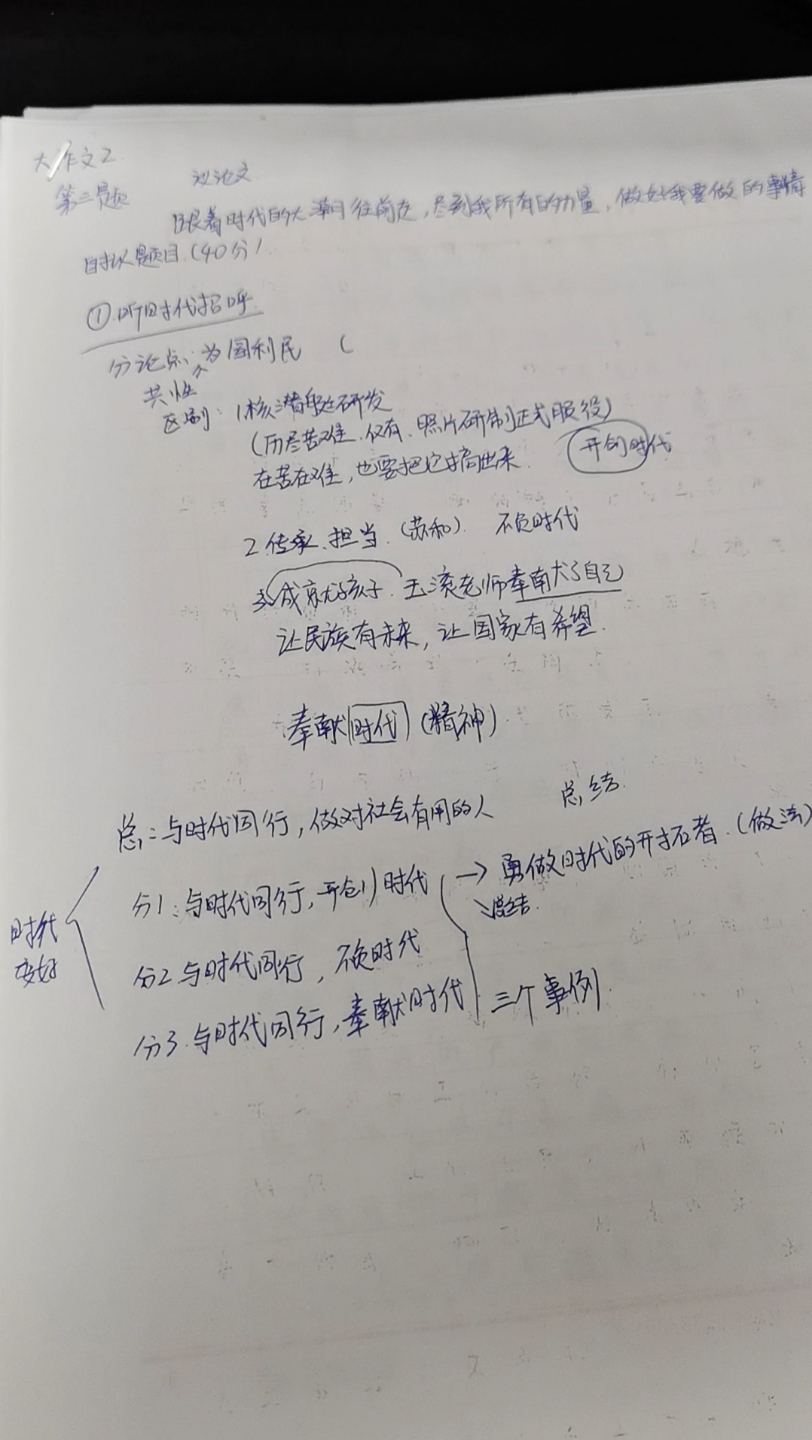 大作文2.
议论文
第二题
跟着时代的大潮往前走,尽到我所有的力量,做好我要做的事情
自拟题目.(40分)
①.听时代招呼.
分论点:为国利民 (
共性
区别: 1核潜艇研发
(历尽苦难.仅有.照片研制正式服役)
在苦在难,也要把它搞出来. 开创时代
2.传承、担当.(苏和). 不负时代
3.成就孩子.玉滚老师奉献了自己
让民族有未来,让国家有希望.
奉献时代(精神)
总:与时代同行,做对社会有用的人 总结.
分1:与时代同行,开创时代 → 勇做时代的开拓者.(做法)
总结.
时代
变好
分2.与时代同行,不负时代
分3.与时代同行,奉献时代 三个事例.